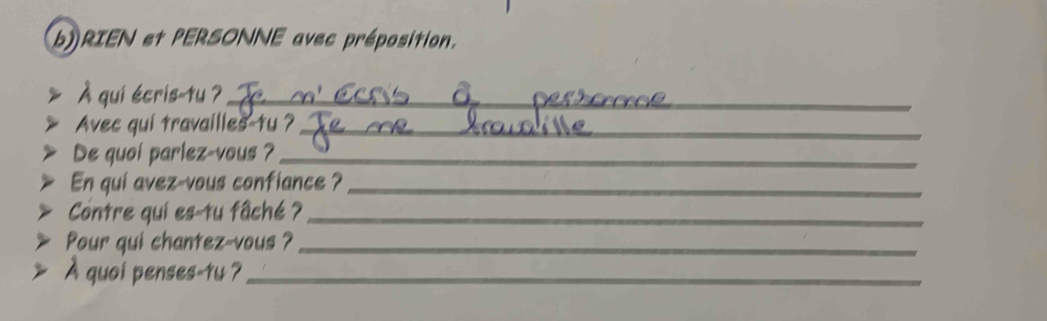 b) RIEN et PERSONNE avec préposition.
➤ À qui écris-tu ? Je n'écris à personne
➤ Avec qui travailles-tu ? Je me travaille
➤ De quoi parlez-vous ?
➤ En qui avez-vous confiance ?
➤ Contre qui es-tu fâché ?
➤ Pour qui chantez-vous ?
➤ À quoi penses-tu ?